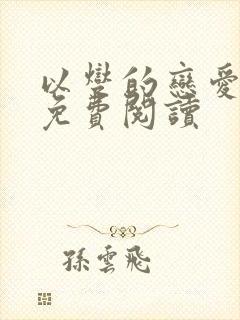 以變的戀愛
免費閱讀
孫雲飛